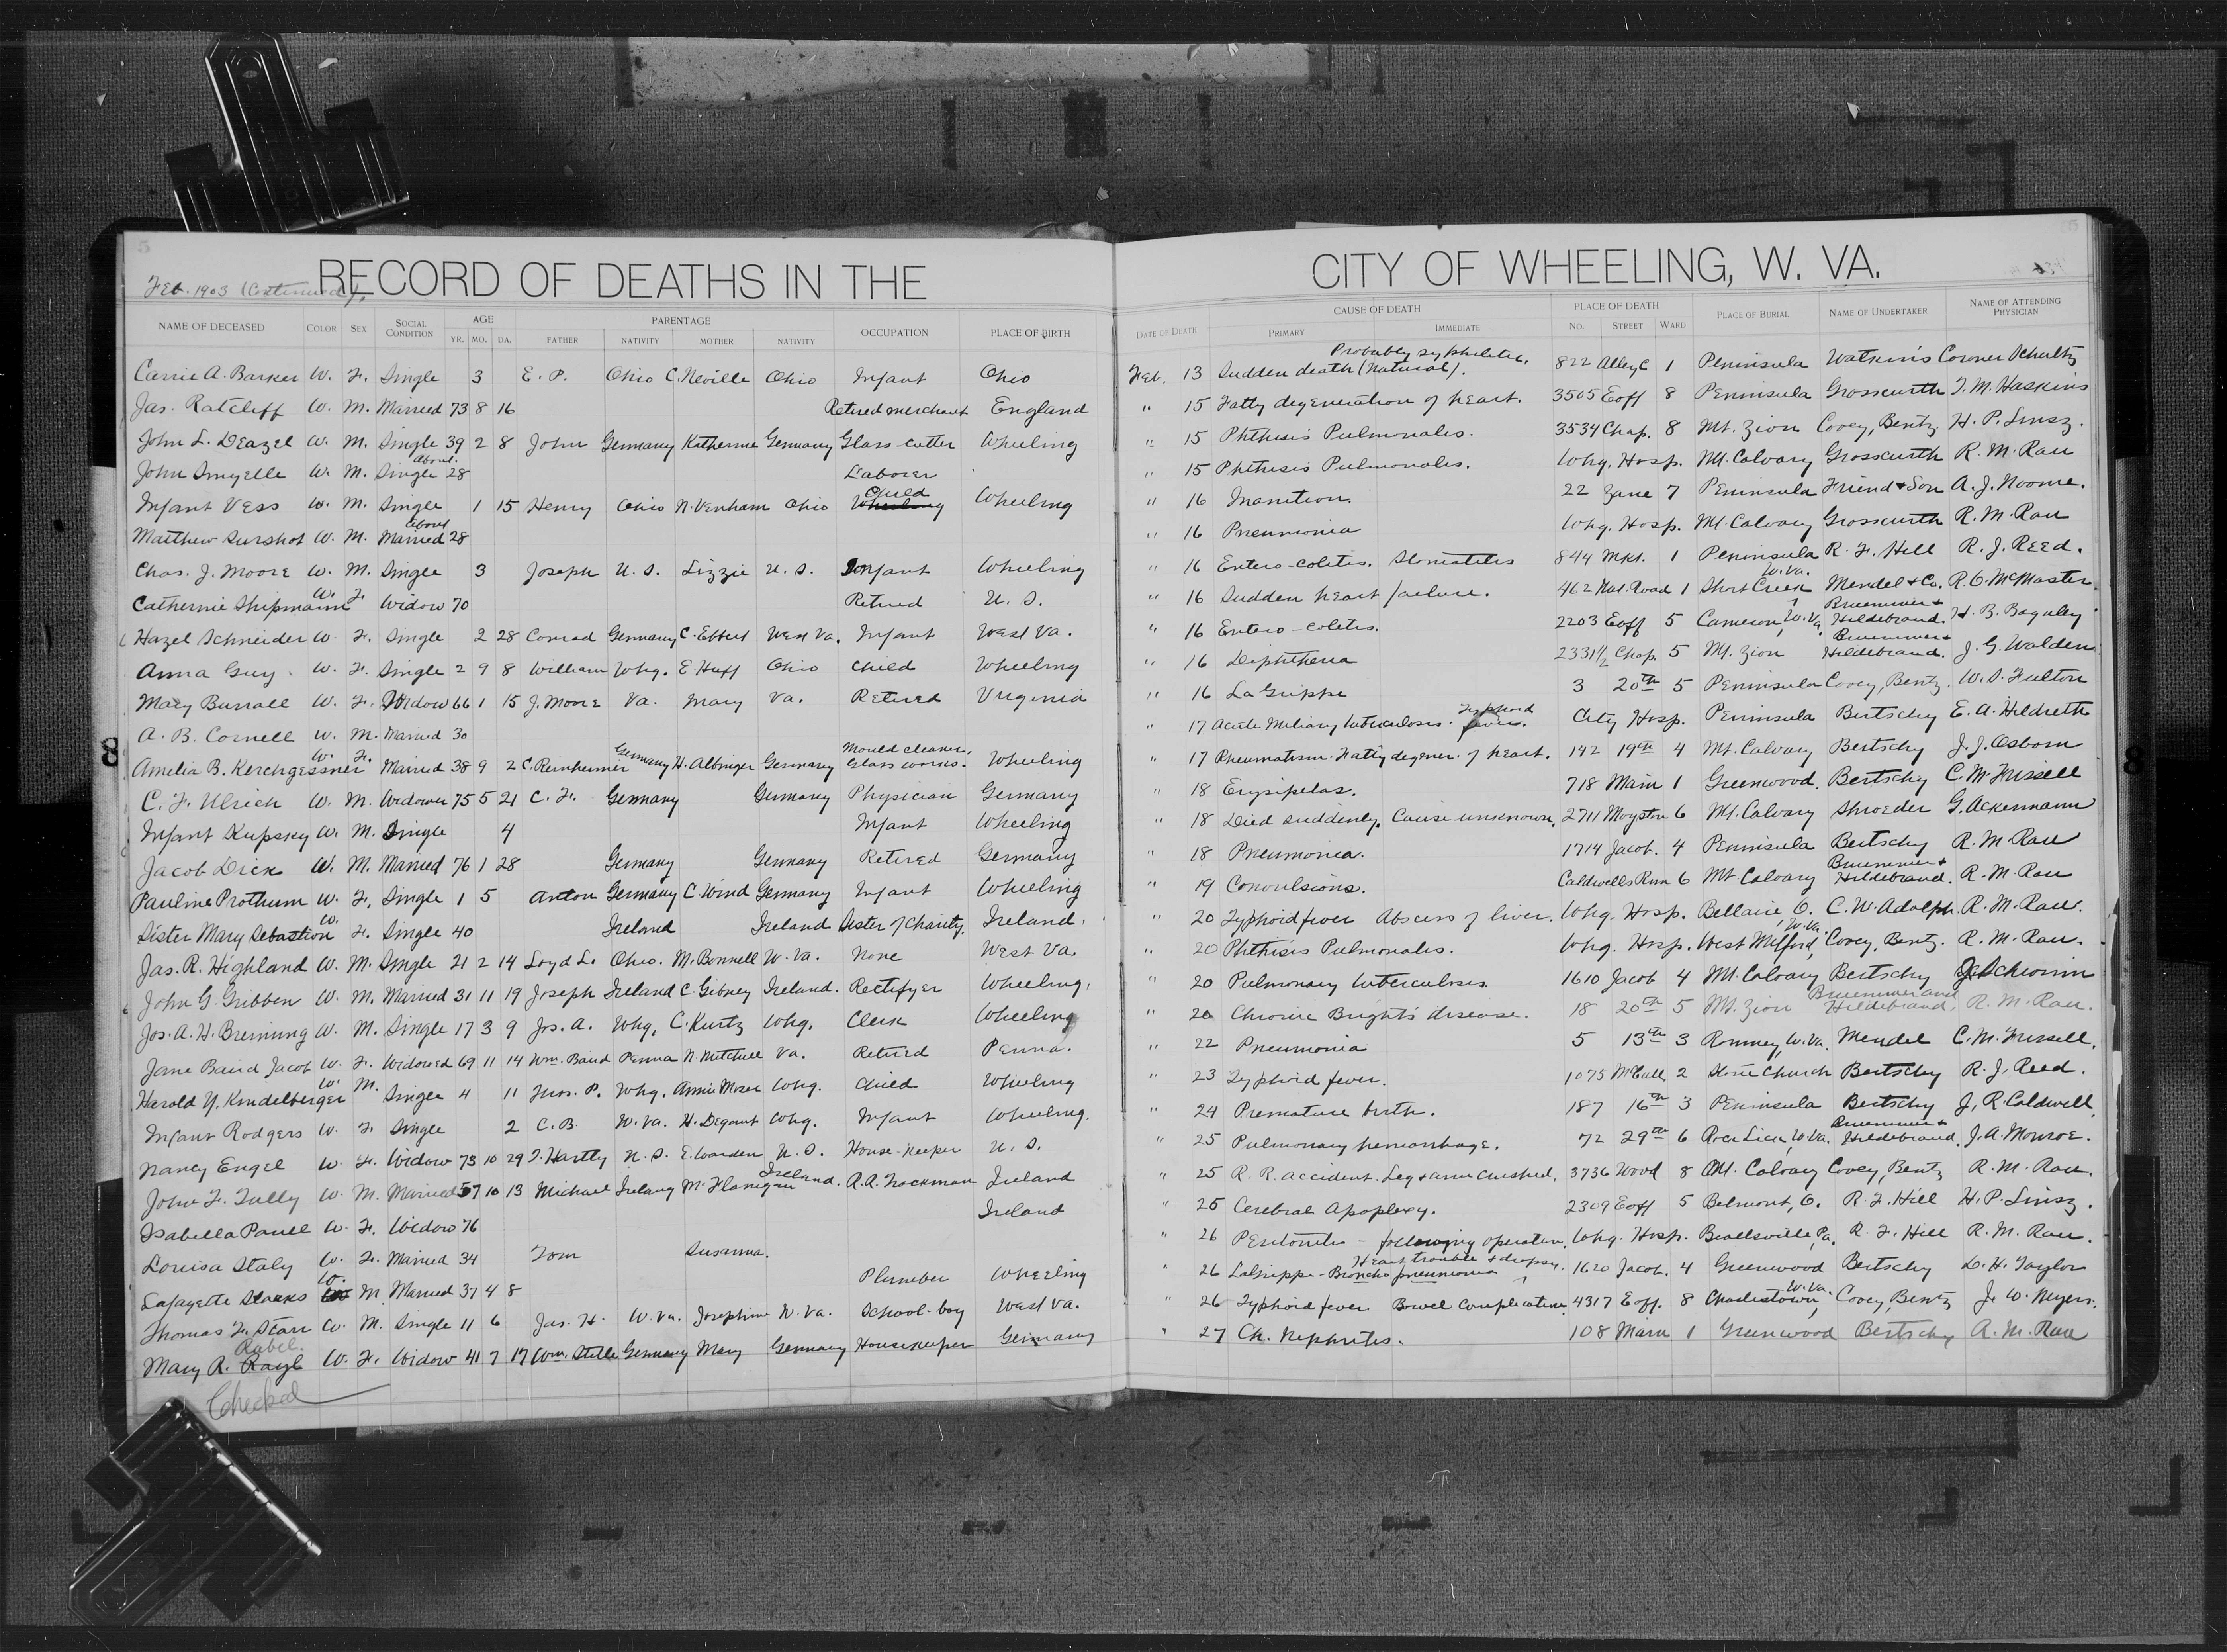 5
Feb. 1903 (Continued). RECORD OF DEATHS IN THE CITY OF WHEELING, W. VA.
NAME OF DECEASED COLOR SEX SOCIAL CONDITION AGE YR. MO. DA. PARENTAGE FATHER NATIVITY MOTHER NATIVITY OCCUPATION PLACE OF BIRTH DATE OF DEATH CAUSE OF DEATH PRIMARY IMMEDIATE PLACE OF DEATH NO. STREET WARD PLACE OF BURIAL NAME OF UNDERTAKER NAME OF ATTENDING PHYSICIAN
Carrie A. Barker W. F. Single 3 E. P. Ohio C. Neville Ohio Infant Ohio Feb. 13 Sudden death (Natural). Probably syphilitic. 822 Alley C 1 Peninsula Watkins Coroner Schultz
Jas. Ratcliff W. M. Married 73 8 16 Retired merchant England " 15 Fatty degeneration of heart. 3505 Eoff 8 Peninsula Grosscurth T. M. Haskins
John L. Deazel W. M. Single 39 2 8 John Germany Katherine Germany Glass-cutter Wheeling " 15 Phthisis Pulmonalis. 3534 Chap. 8 Mt. Zion Covey, Bentz. H. P. Linsz.
John Smyelle W. M. Single about 28 Laborer " 15 Phthisis Pulmonalis. Whg. Hosp. Mt. Calvary Grosscurth R. M. Rau
Infant Vess W. M. Single 1 15 Henry Ohio N. Venham Ohio Wheeling Child Wheeling " 16 Inanition. 22 Zane 7 Peninsula Friend & Son A. J. Noome.
Matthew Surshot W. M. Married about 28 " 16 Pneumonia Whg. Hosp. Mt. Calvary Grosscurth R. M. Rau
Chas. J. Moore W. M. Single 3 Joseph U. S. Lizzie U. S. Infant Wheeling " 16 Entero-colitis. Stomatitis 844 Mkt. 1 Peninsula R. F. Hill R. J. Reed.
Catherine Shipmann W. F. Widow 70 Retired U. S. " 16 Sudden heart failure. 462 Nat. Road 1 Short Creek W. Va. Mendel & Co. R. C. McMaster
Hazel Schneider W. F. Single 2 28 Conrad Germany C. Ebbert West Va. Infant West Va. " 16 Entero-colitis. 2203 Eoff 5 Cameron, W. Va. Bruemmer & Hildebrand. H. B. Baguley
Anna Guy W. F. Single 2 9 8 William Whg. E. Huff Ohio Child Wheeling " 16 Diphtheria 2331 1/2 Chap. 5 Mt. Zion Bruemmer & Hildebrand. J. G. Walden
Mary Burrall W. F. Widow 66 1 15 J. Moore Va. Mary Va. Retired Virginia " 16 La Grippe 3 20th 5 Peninsula Covey, Bentz. W. S. Fulton
A. B. Cornell W. M. Married 30 " 17 Acute Miliary tuberculosis. Typhoid fever. City Hosp. Peninsula Bertschy E. A. Hildreth
Amelia B. Kerchgessner W. F. Married 38 9 2 C. Reinheimer Germany H. Albinger Germany Mould cleaner, Glass works. Wheeling " 17 Rheumatism. Fatty degener. of heart. 142 19th 4 Mt. Calvary Bertschy J. J. Osborn
C. F. Ulrich W. M. Widower 75 5 21 C. F. Germany Germany Physician Germany " 18 Erysipelas. 718 Main 1 Greenwood. Bertschy C. M. Frissell
Infant Kupsky W. M. Single 4 Infant Wheeling " 18 Died suddenly. Cause unknown. 2711 Moyston 6 Mt. Calvary Shroeder G. Ackermann
Jacob Dick W. M. Married 76 1 28 Germany Germany Retired Germany " 18 Pneumonia. 1714 Jacob. 4 Peninsula Bertschy R. M. Rau
Pauline Prothum W. F. Single 1 5 Anton Germany C. Wind Germany Infant Wheeling " 19 Convulsions. Caldwells Run 6 Mt Calvary Bruemmer & Hildebrand. R. M. Rau
Sister Mary Sebastion W. F. Single 40 Ireland Ireland Sister of Charity. Ireland. " 20 Typhoid fever Abscess of liver. Whg. Hosp. Bellaire, O. C. W. Adolph. R. M. Rau.
Jas. R. Highland W. M. Single 21 2 14 Loyd L. Ohio. M. Bonnell W. Va. None West Va. " 20 Phthisis Pulmonalis. Whg. Hosp. West Milford, W. Va. Covey, Bentz. R. M. Rau.
John G. Gribben W. M. Married 31 11 19 Joseph Ireland C. Gibney Ireland. Rectifyer Wheeling. " 20 Pulmonary tuberculosis 1610 Jacob 4 Mt. Calvary Bertschy Schwinn
Jos. A. H. Breining W. M. Single 17 3 9 Jos. A. Whg. C. Kurtz Whg. Clerk Wheeling " 20 Chronic Brights disease. 18 20th 5 Mt. Zion Bruemmer and Hildebrand. R. M. Rau.
Jane Baird Jacob W. F. Widowed 69 11 14 Wm. Baird Penna N. Mitchell Va. Retired Penna. " 22 Pneumonia 5 13th 3 Romney, W. Va. Mendel C. M. Frissell.
Harold Y. Kindelberger W. M. Single 4 11 Thos. P. Whg. Annie Moser Whg. Child Wheeling " 23 Typhoid fever. 1075 McCull. 2 Stone Church Bertschy R. J. Reed.
Infant Rodgers W. F. Single 2 C. B. W. Va. H. Degant Whg. Infant Wheeling. " 24 Premature birth. 187 16th 3 Peninsula Bertschy J. R. Caldwell.
Nancy Engel W. F. Widow 73 10 29 T. Hartly U. S. E. Warden U. S. House-keeper U. S. " 25 Pulmonary hemorrhage. 72 29th 6 Rock Lick, W. Va. Bruemmer & Hildebrand. J. A. Monroe.
John F. Tully W. M. Married 57 10 13 Michael Ireland M. Flanigan Ireland. R. R. Trackman Ireland " 25 R. R. accident. Leg & arm crushed. 3736 Wood 8 Mt. Calvary Covey, Bentz R. M. Rau.
Isabella Paull W. F. Widow 76 Ireland " 25 Cerebral Apoplexy. 2309 Eoff 5 Belmont, O. R. F. Hill H. P. Linsz.
Louisa Staly W. F. Married 34 Tom Susanna. " 26 Peritonitis - following operation. Whg. Hosp. Beallsville, Pa. R. F. Hill R. M. Rau.
Lafayette Starks W. M. Married 37 4 8 Plumber Wheeling " 26 LaGrippe - Broncho pneumonia Heart trouble & dropsy. 1620 Jacob. 4 Greenwood Bertschy D. H. Taylor
Thomas F. Starr W. M. Single 11 6 Jas. H. W. Va. Josephine W. Va. School-boy West Va. " 26 Typhoid fever Bowel complication. 4317 Eoff. 8 Charlestown, W. Va. Covey, Bentz J. W. Myers.
Mary R. Rayl Rabel. W. F. Widow 41 7 17 Wm. Stille Germany Mary Germany Housekeeper Germany " 27 Ch. Nephritis. 108 Main 1 Greenwood Bertschy R. M. Rau
Checked